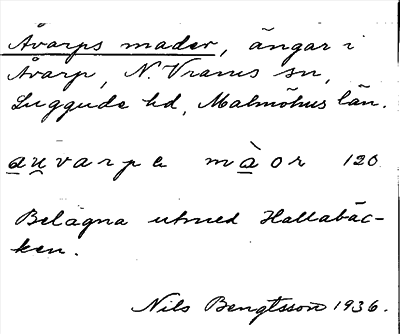 Åvarps mader, ängar i
Åvarp, N. Vrams sn,
Luggude hd, Malmöhus län.
au̯varpa màor 120
Belägna utmed Hallabäc-
ken.
Nils Bengtsson 1936.